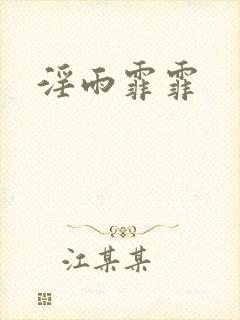 淫雨霏霏
江某某